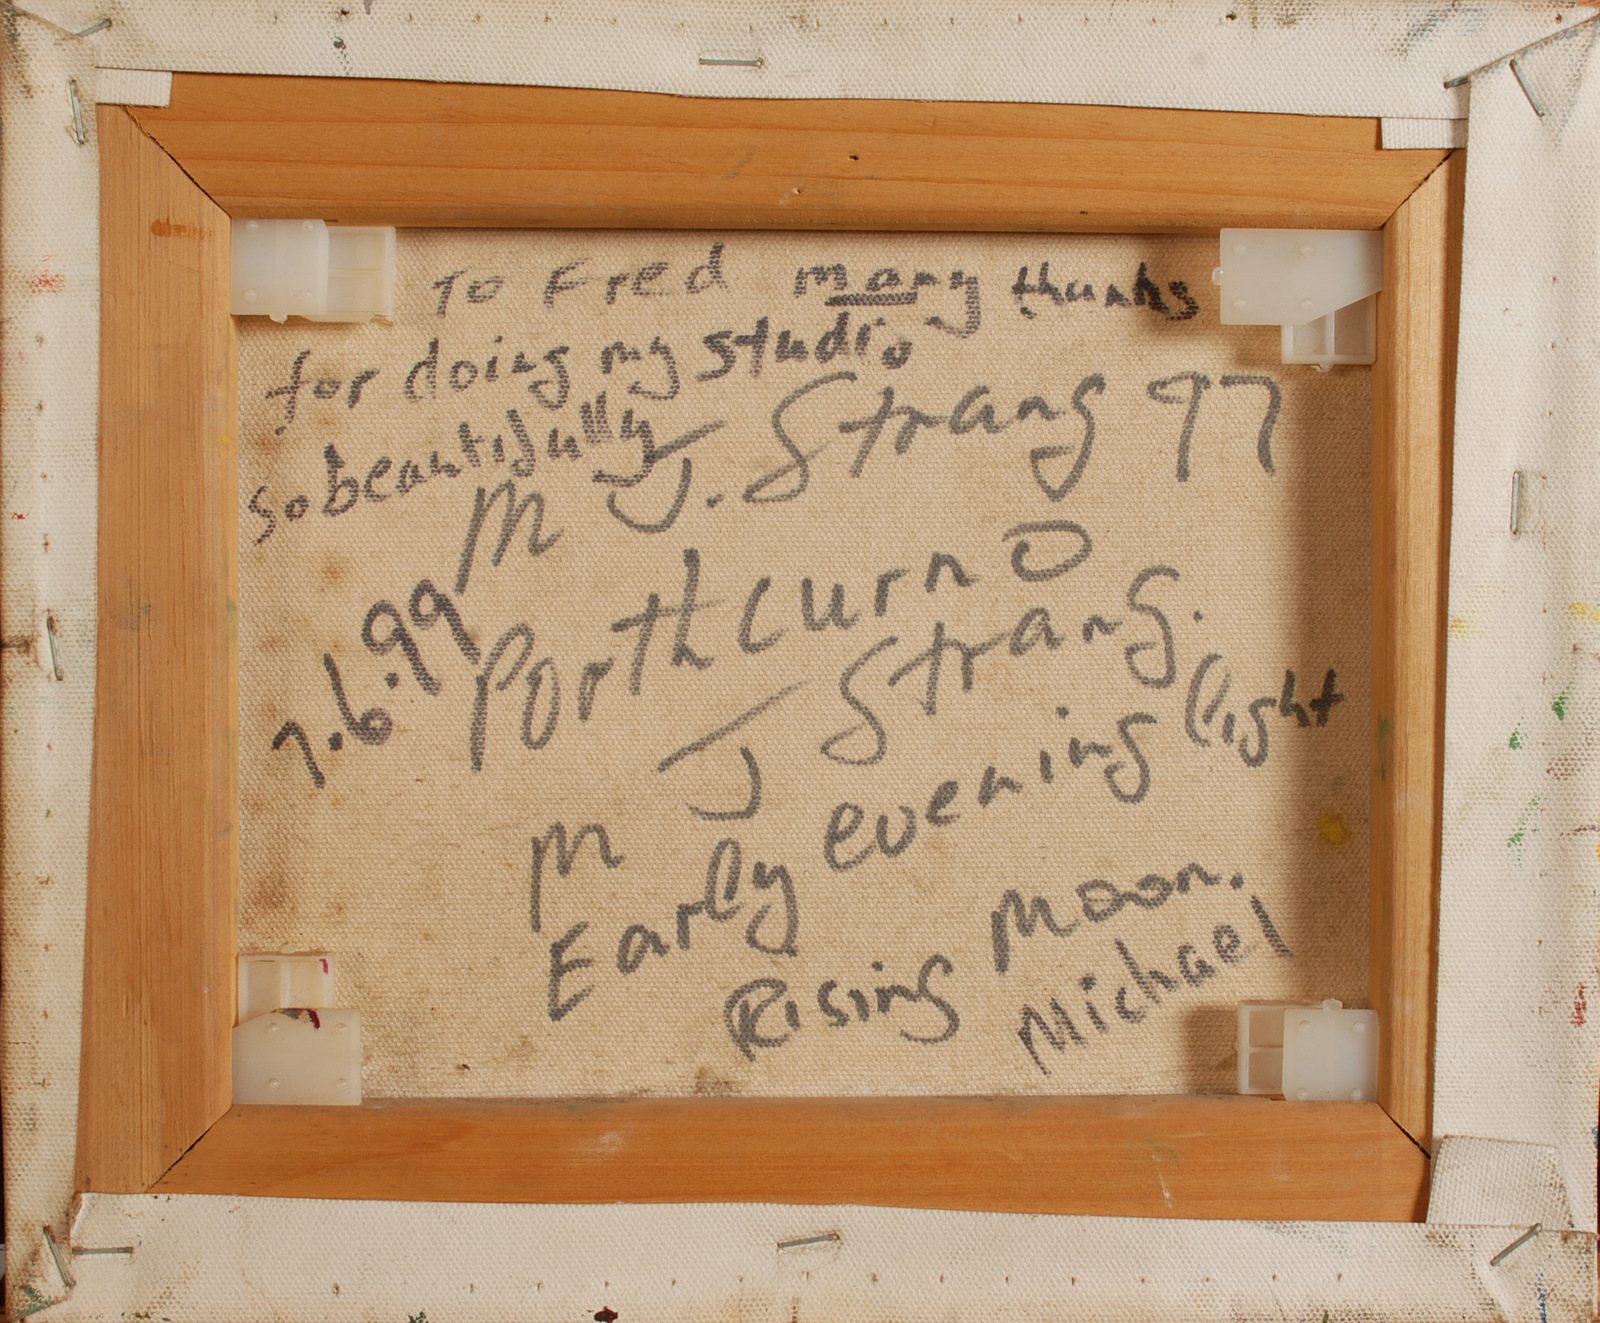 To Fred many thanks
for doing my studio
so beautifully
M J. Strang 97
7.6.99
Porthcurno
M J Strang.
Early evening light
Rising Moon.
Michael